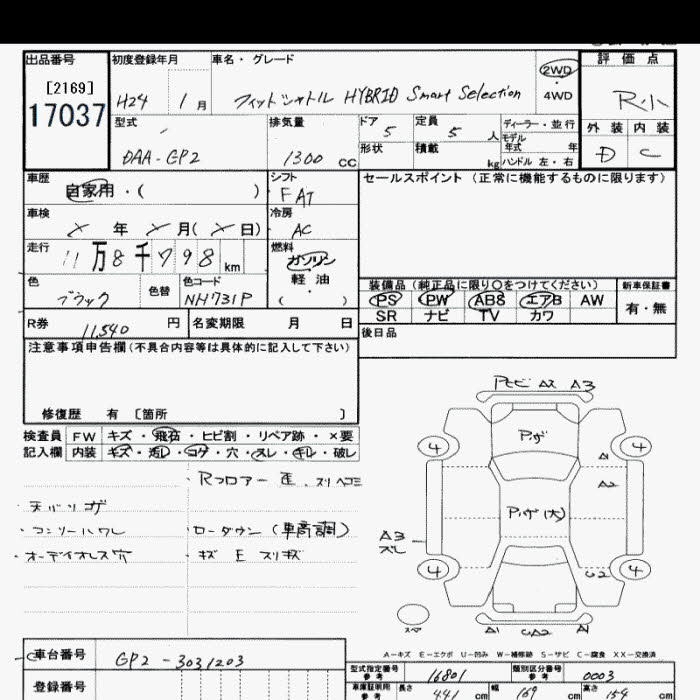 出品番号 初度登録年月 車名・グレード 評価点
[2169] 2WD
17037 H24 1月 フィットシャトル HYBRID Smart Selection 4WD R小
型式 排気量 ドア 5 定員 5人 ディーラー・並行 外装 内装
モデル年式 年
DAA-GP2 1300 CC 形状 積載 kg ハンドル 左・右 D C
車歴 自家用・( ) シフト FAT セールスポイント(正常に機能するものに限ります)
車検 × 年 × 月( × 日) 冷房 AC
走行 11万8千798 km 燃料 ガソリン
軽・油
( )
色 ブラック 色替 色コード NH731P 装備品(純正品に限り〇をつけてください) 新車保証書
PS PW ABS エアB AW 有・無
SR ナビ TV カワ
R券 11,540 円 名変期限 月 日 後日品
注意事項申告欄(不具合内容等は具体的に記入して下さい)
修復歴 有 [箇所 ]
検査員 FW キズ・飛石・ヒビ割・リペア跡・×要
記入欄 内装 キズ・汚レ・コゲ・穴・スレ・キレ・破レ
Rフロアー 歪、スリヘコミ
天バリコゲ
・コンソールワレ ・ローダウン(車高調)
・オーディオレス穴 ・キズ E スリキズ
A3
4 4
A1
A2
A3
4 4
U2
A1 A1
A-キズ E-エクボ U-凹み W-補修跡 S-サビ C-腐食 XX-交換済
車台番号 GP2-3031203
型式指定番号 参考 16801 類別区分番号 参考 0003
登録番号 車庫証明用 参考 長さ 441 cm 幅 169 cm 高さ 154 cm